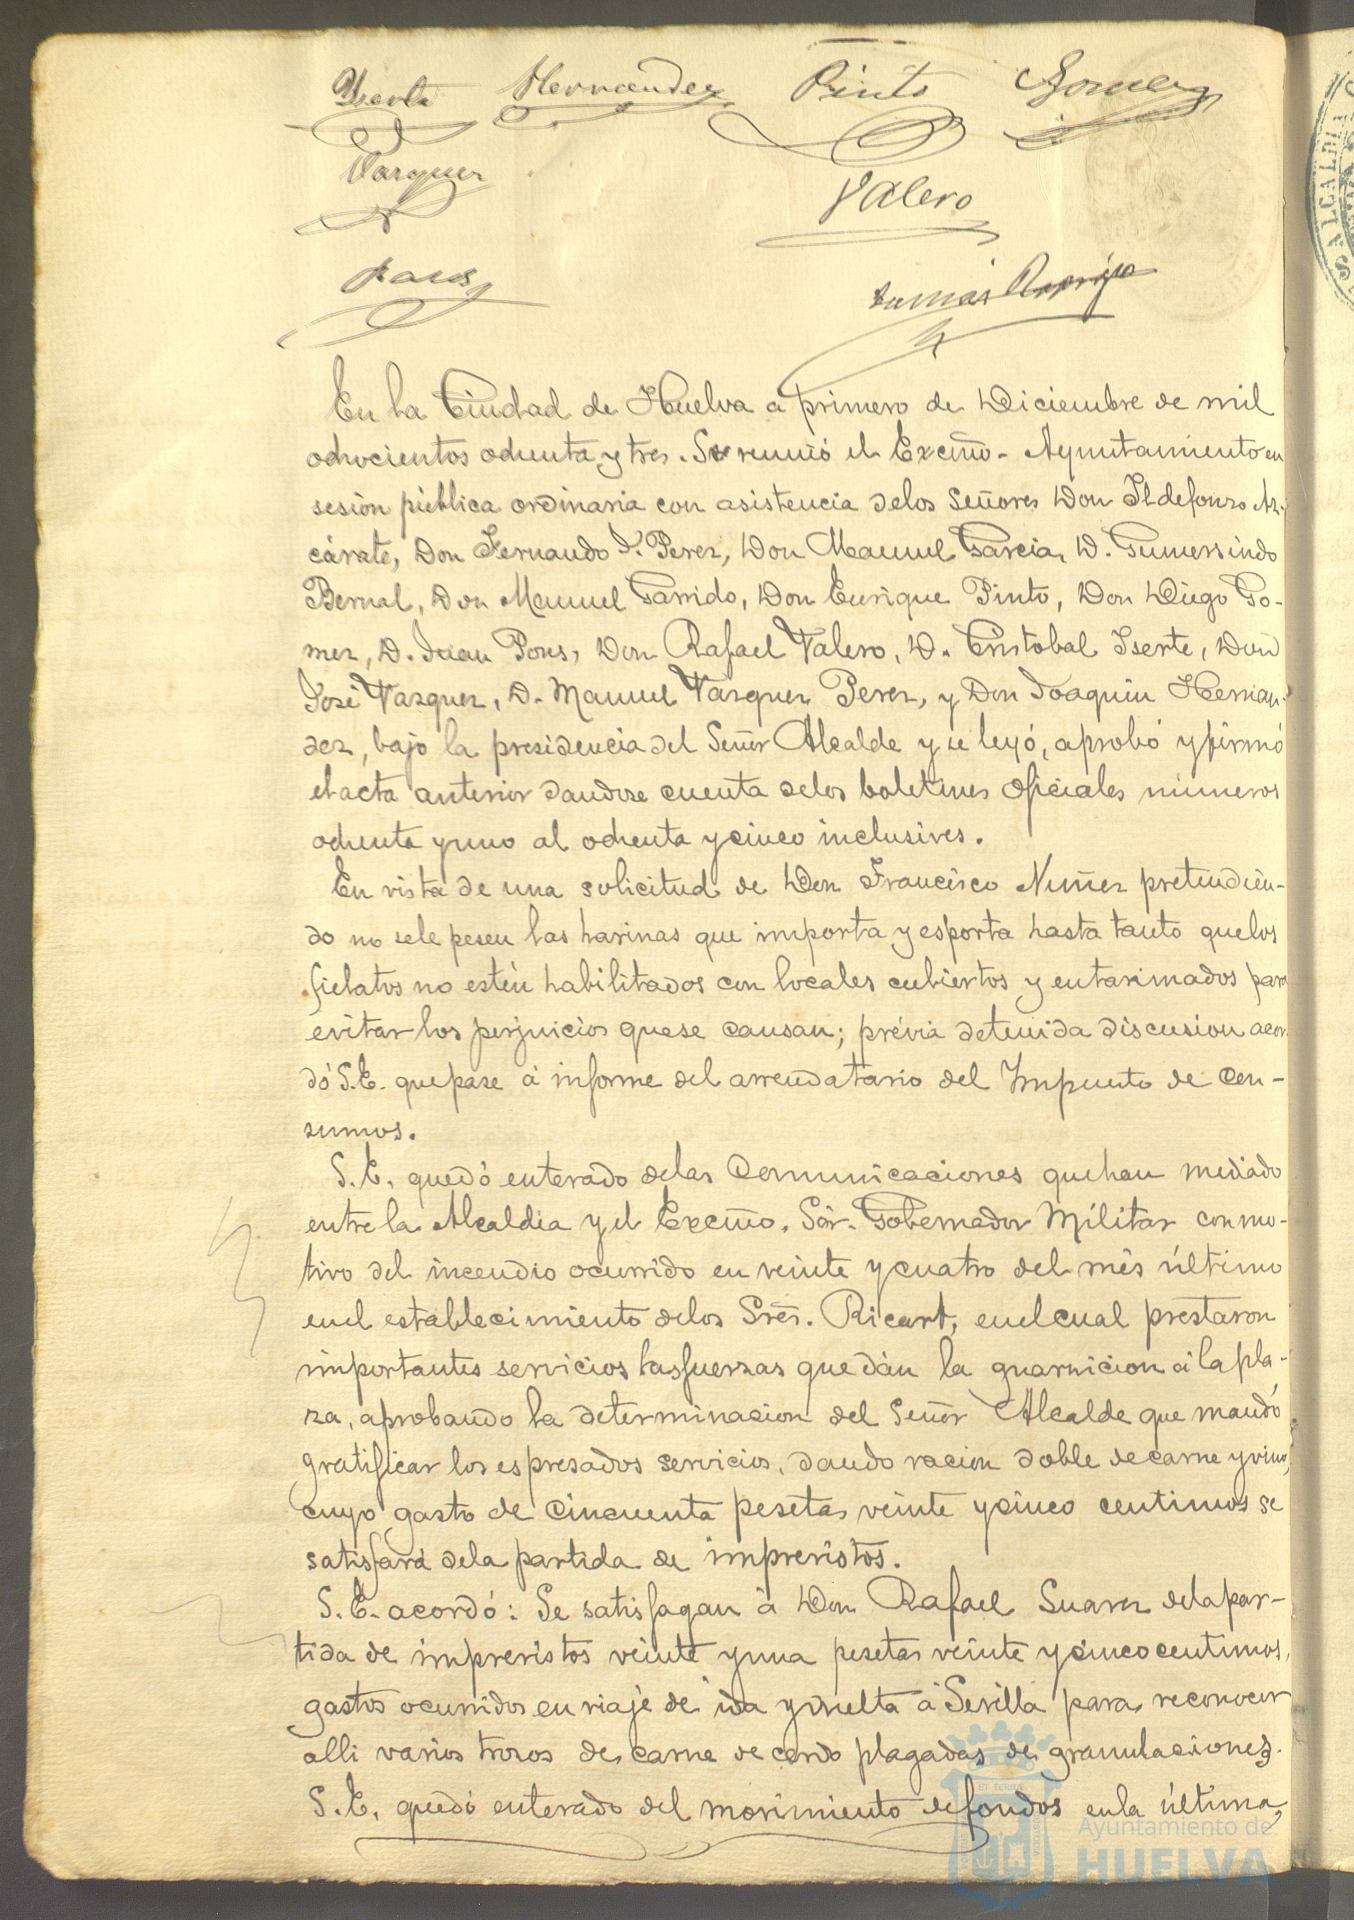 Yserte Hernandez Pinto Gomez
Vazquez
Valero
Pons
Tomás
En la Ciudad de Huelva a primero de Diciembre de mil
ochocientos ochenta y tres. Se reunió el Excmo. Ayuntamiento en
sesión pública ordinaria con asistencia delos Señores Don Ildefonso Az-
cárate, Don Fernando J. Perez, Don Manuel Garcia, D. Gumersindo
Bernal, Don Manuel Garrido, Don Enrique Pinto, Don Diego Go-
mez, D. Juan Pons, Don Rafael Valero, D. Cristobal Iserte, Don
José Vazquez, D. Manuel Vazquez Perez, y Don Joaquin Hernan-
dez, bajo la presidencia del Señor Alcalde y se leyó, aprobó y firmó
el acta anterior dandose cuenta delos boletines oficiales números
ochenta y uno al ochenta y cinco inclusives.
En vista de una solicitud de Don Francisco Nuñez pretendien-
do no sele pesen las harinas que importa y esporta hasta tanto quelos
fielatos no estén habilitados con locales cubiertos y entarimados para
evitar los perjuicios quese causan; prévia detenida discusion acor-
dó S.E. que pase á informe del arrendatario del Impuesto de Con-
sumos.
S.E. quedó enterado delas Comunicaciones quehan mediado
entre la Alcaldia y el Excmo. Sór. Gobernador Militar con mo-
tivo del incendio ocurrido en veinte y cuatro del més último
en el establecimiento delos Sres. Ricart, en el cual prestaron
importantes servicios las fuerzas que dán la guarnicion á la pla-
za, aprobando la determinacion del Señor Alcalde que mandó
gratificar los espresados servicios, dando racion doble de carne y vino,
cuyo gasto de cincuenta pesetas veinte y cinco centimos se
satisfará dela partida de imprevistos.
S.E. acordó: Se satisfagan á Don Rafael Suarez dela par-
tida de imprevistos veinte y una pesetas veinte y cinco centimos,
gastos ocurridos en viaje de ida y vuelta á Sevilla para reconocer
alli varios trozos de carne de cerdo plagadas de granulaciones.
S.E. quedó enterado del movimiento de fondos en la última
Ayuntamiento de
HUELVA
ALCALDIA